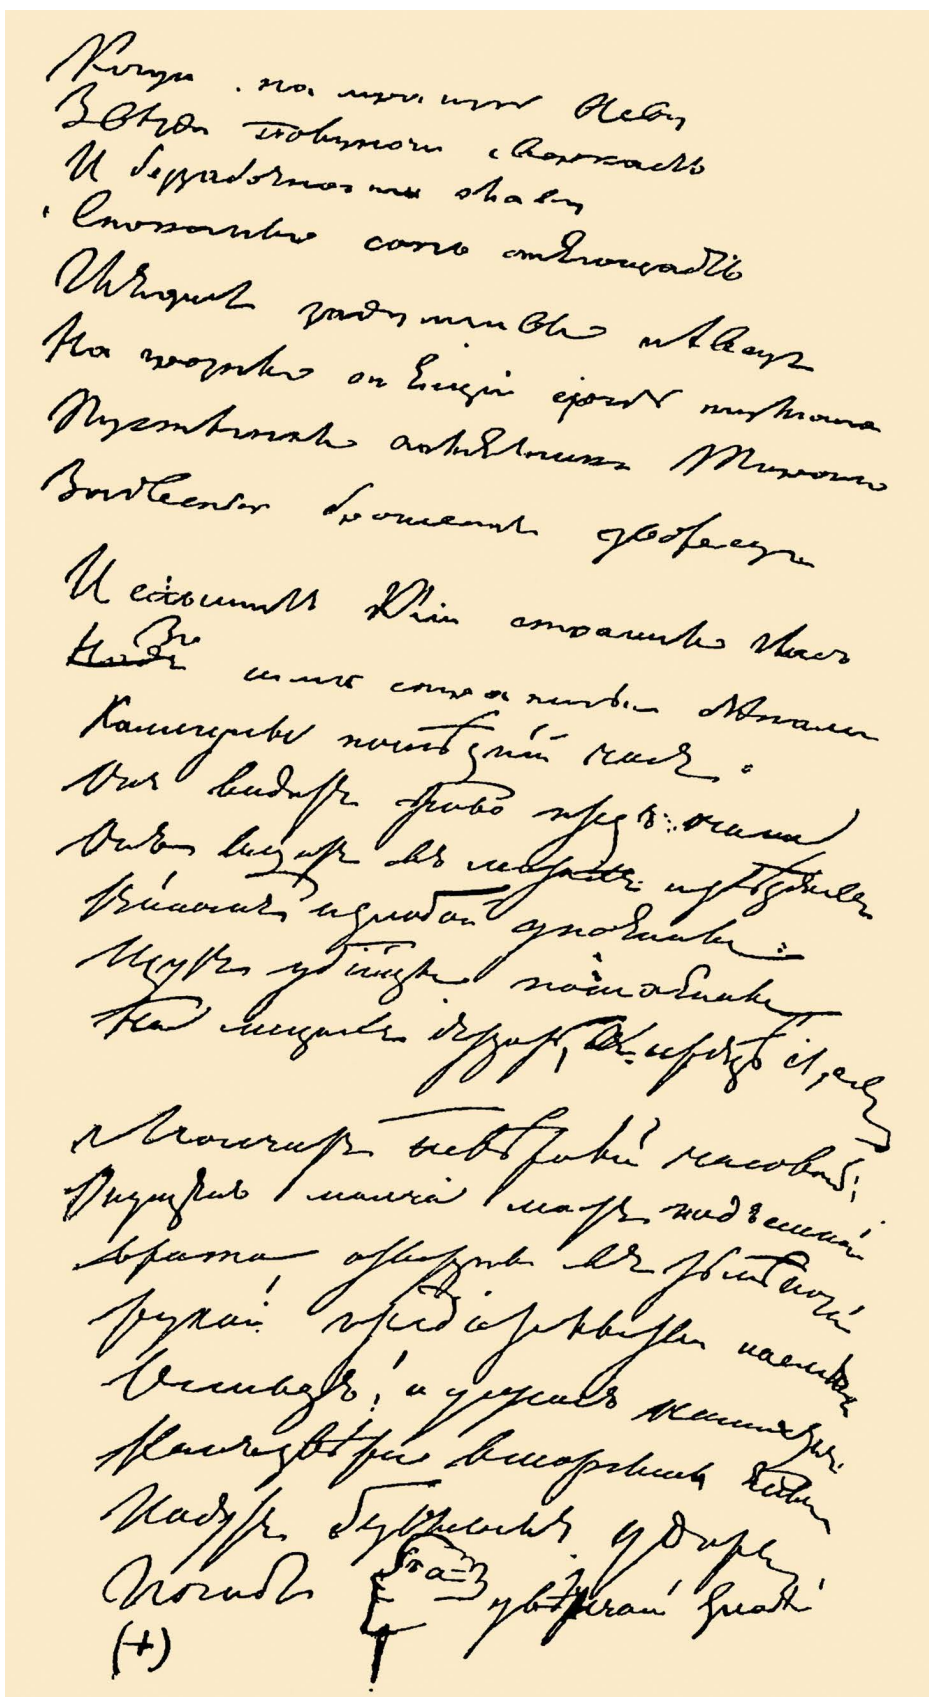 Когда на мрачную Неву
Звѣзда полуночи сверкаетъ
И беззаботную главу
Спокойный сонъ отягощаетъ
Глядитъ задумчивый пѣвецъ
На грозно спящій средь тумана
Пустынный памятникъ Тирана
Забвенью брошенный дворецъ
И слышитъ Кліи страшный гласъ
За
сими страшными стѣнами
Калигулы послѣдній часъ
Онъ видитъ живо предъ очами
Онъ видитъ въ лентахъ и звѣздахъ
Виномъ и злобой упоенны
Идутъ убійцы потаенны
На лицахъ дерзость, въ сердцѣ страхъ
Молчитъ невѣрный часовой;
Опущенъ молча мостъ подъемный
Врата отверсты въ тьмѣ ночной
Рукой предательства наемной
О стыдъ! о ужасъ нашихъ дней
Какъ звѣри вторглись Янычары
Падутъ безславные удары
Погибъ увѣнчанный злодѣй
(+)